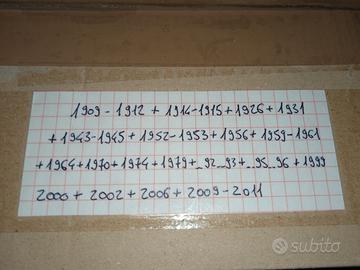 1909 - 1912 + 1914 - 1915 + 1926 + 1931
+ 1943 - 1945 + 1952 - 1953 + 1956 + 1959 - 1961
+ 1964 + 1970 + 1974 + 1979 + _92_93 + _95_96 + 1999
2000 + 2002 + 2006 + 2009 - 2011
subito